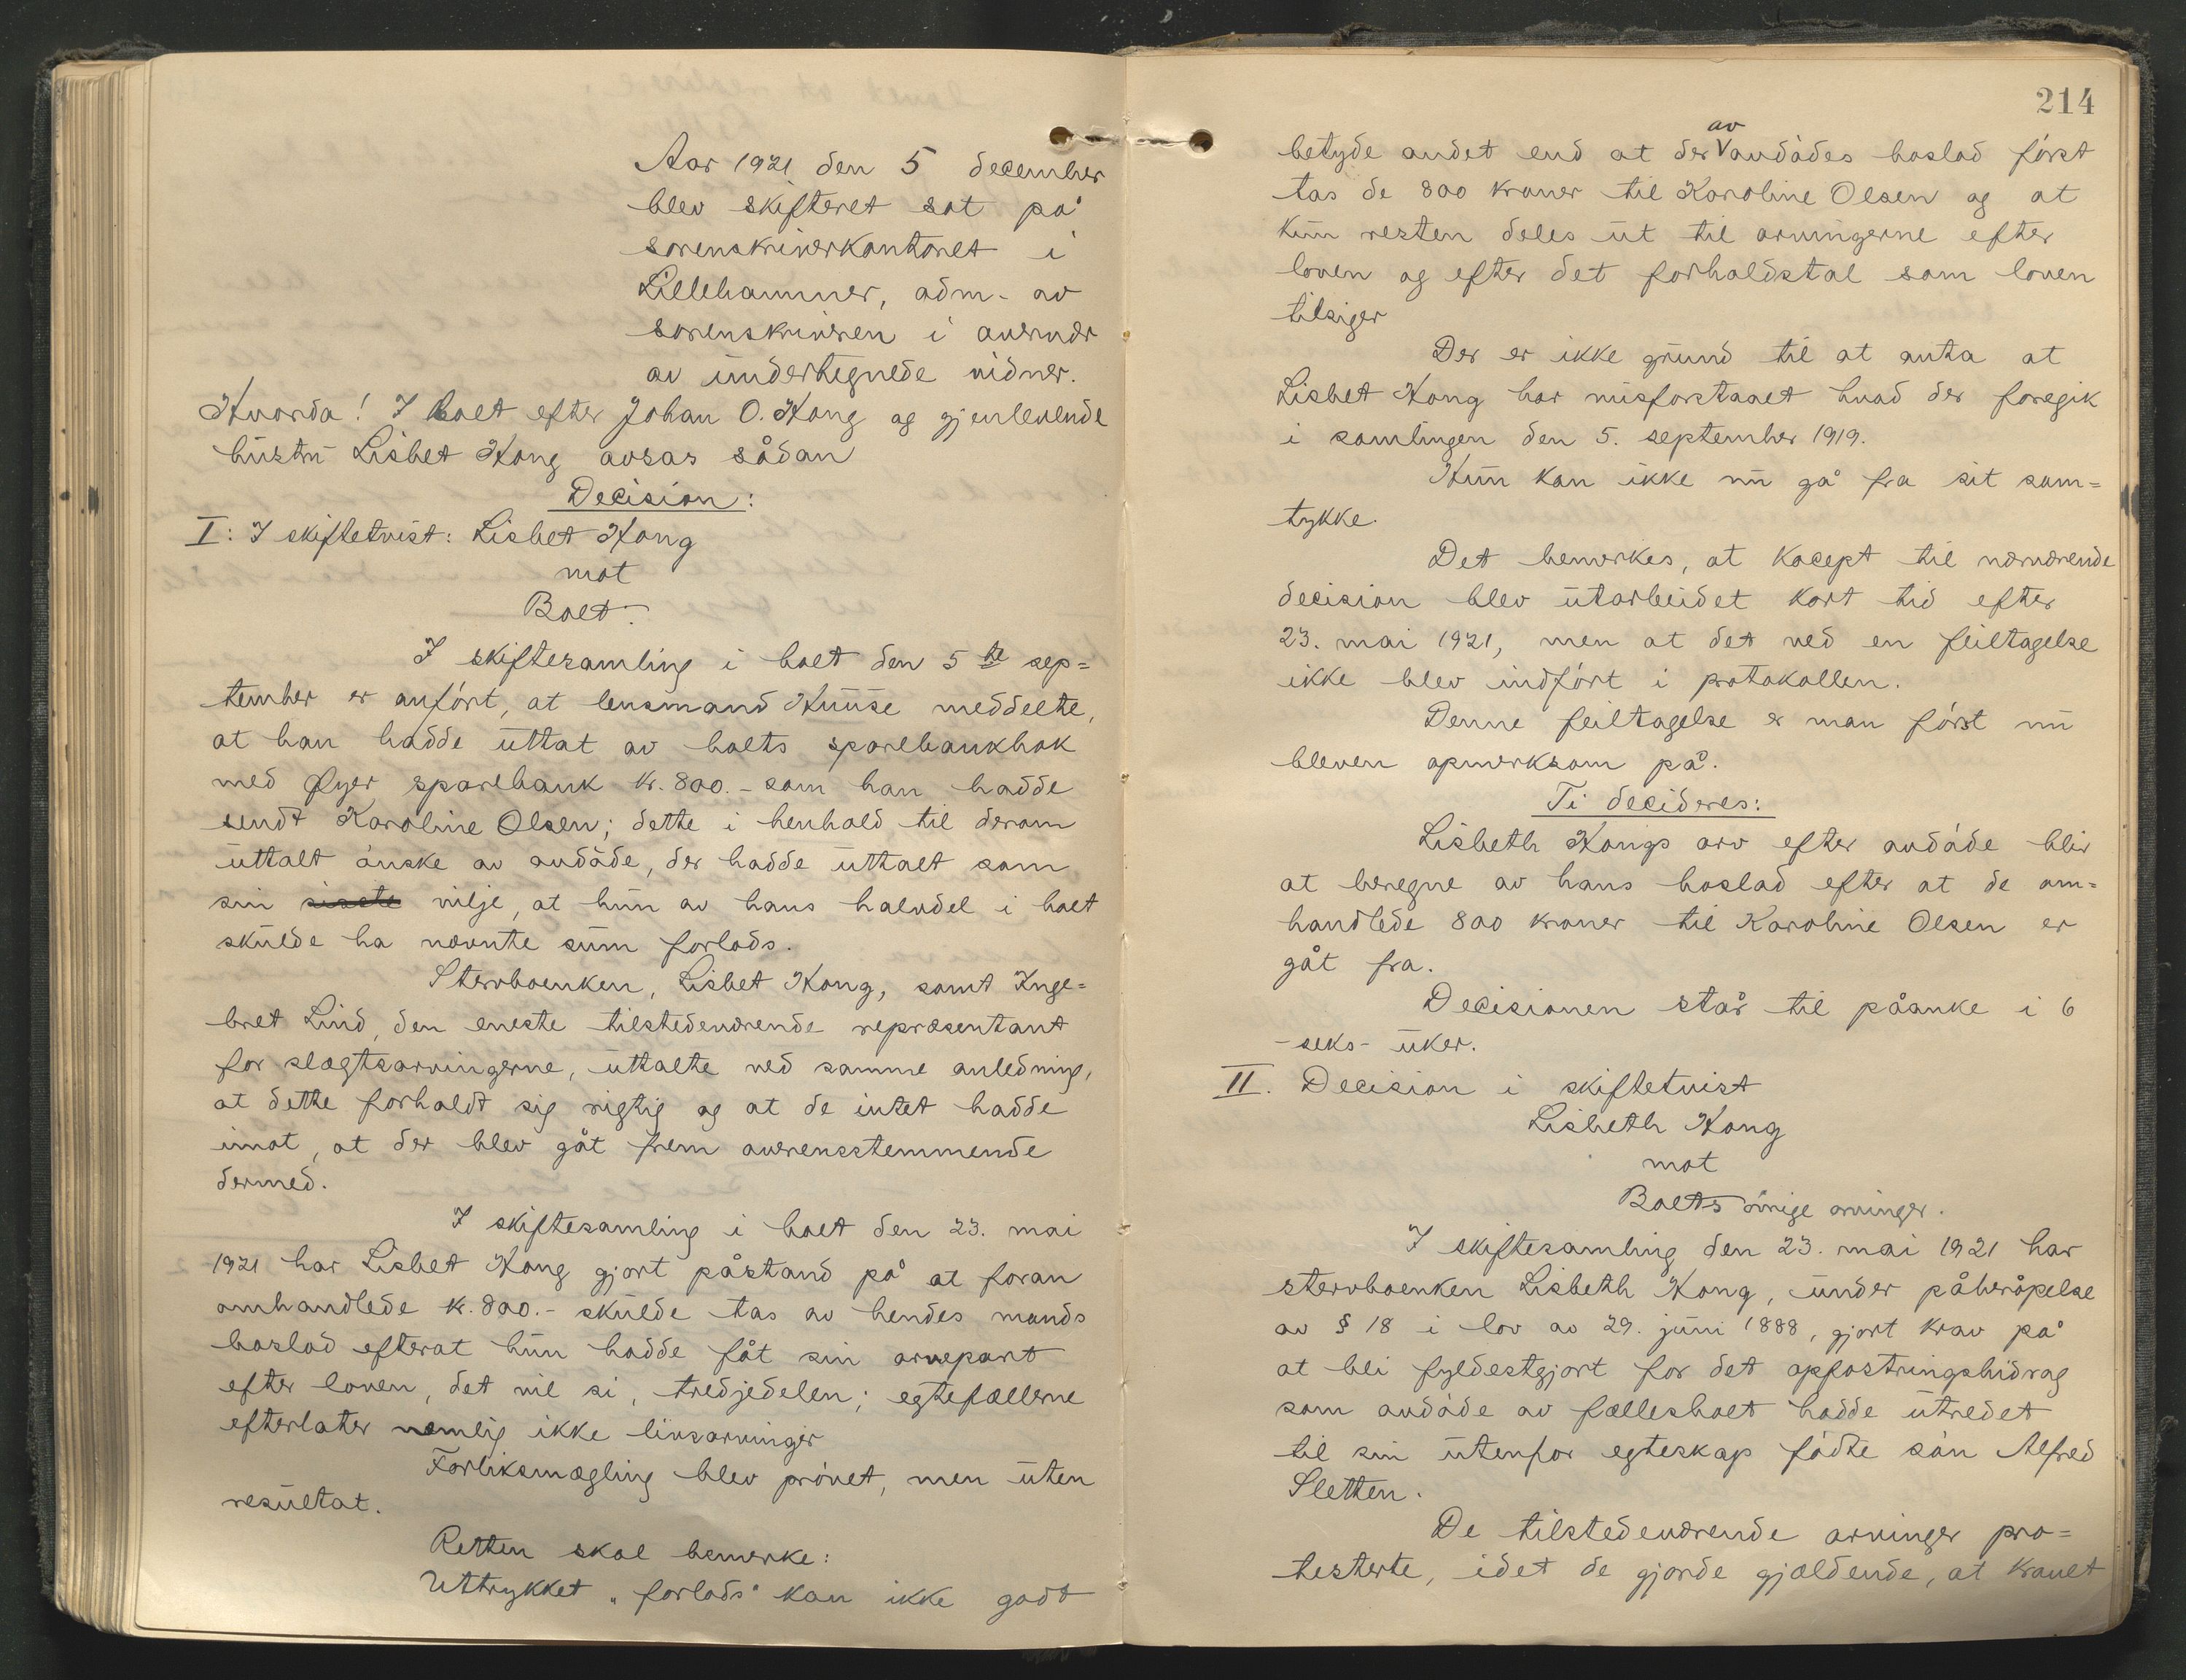 Aar 1921 den 5 december
blev skifteret sat på
sorenskriverkontoret i
Lillehammer, adm. av
sorenskriveren i overvær
av undertegnede vidner.
Hvorda! I boet efter Johan O. Kong og gjenlevende
hustru Lisbet Kong avsas sådan
Decision:
I: I skiftetvist: Lisbet Kong
mot
Boet.
I skiftesamling i boet den 5te sep=
tember er anført, at lensmand Huuse meddelte,
at han hadde uttat av boets sparebankbok
med Øyer sparebank kr. 800.- som han hadde
sendt Karoline Olsen; dette i henhold til derom
uttalt ønske av avdøde, der hadde uttalt som
sin siste vilje, at hun av hans halvdel i boet
skulde ha nævnte sum forlods.
Stervboenken, Lisbet Kong, samt Inge=
bret Lind, den eneste tilstedeværende repræsentant
for slægtsarvingerne, uttalte ved samme anledning,
at dette forholdt sig rigtig og at de intet hadde
imot, at der blev gåt frem overensstemmende
dermed.
I skiftesamling i boet den 23. mai
1921 har Lisbet Kong gjort påstand på at foran
omhandlede kr. 800.- skulde tas av hendes mands
boslod efterat hun hadde fåt sin arvepart
efter loven, det vil si, tredjedelen; egtefællerne
efterlater nemlig ikke livsarvinger
Forliksmægling blev prøvet, men uten
resultat.
Retten skal bemerke:
Uttrykket "forlods" kan ikke godt
214
betyde andet end at der av avdødes boslod først
tas de 800 kroner til Karoline Olsen og at
kun resten deles ut til arvingerne efter
loven og efter det forholdstal som loven
tilsiger
Der er ikke grund til at anta at
Lisbet Kong har misforstaaet hvad der foregik
i samlingen den 5. september 1919.
Hun kan ikke nu gå fra sit sam=
tykke.
Det bemerkes, at kocept til nærværende
decision blev utarbeidet kort tid efter
23. mai 1921, men at det ved en feiltagelse
ikke blev indført i protokollen.
Denne feiltagelse er man først nu
bleven opmerksom på.
Ti decideres:
Lisbeth Kongs arv efter avdøde blir
at beregne av hans boslod efter at de om=
handlede 800 kroner til Karoline Olsen er
gåt fra.
Decisionen står til påanke i 6
-seks- uker.
II. Decision i skiftetvist
Lisbeth Kong
mot
Boets øvrige arvinger.
I skiftesamling den 23. mai 1921 har
stervboenken Lisbeth Kong, under påberåpelse
av § 18 i lov av 29. juni 1888, gjort krav på
at bli fyldestgjort for det opfostringsbidrag
som avdøde av fællesboet hadde utredet
til sin utenfor egteskap fødte søn Alfred
Sletten.
De tilstedeværende arvinger pro=
testerte, idet de gjorde gjældende, at kravet